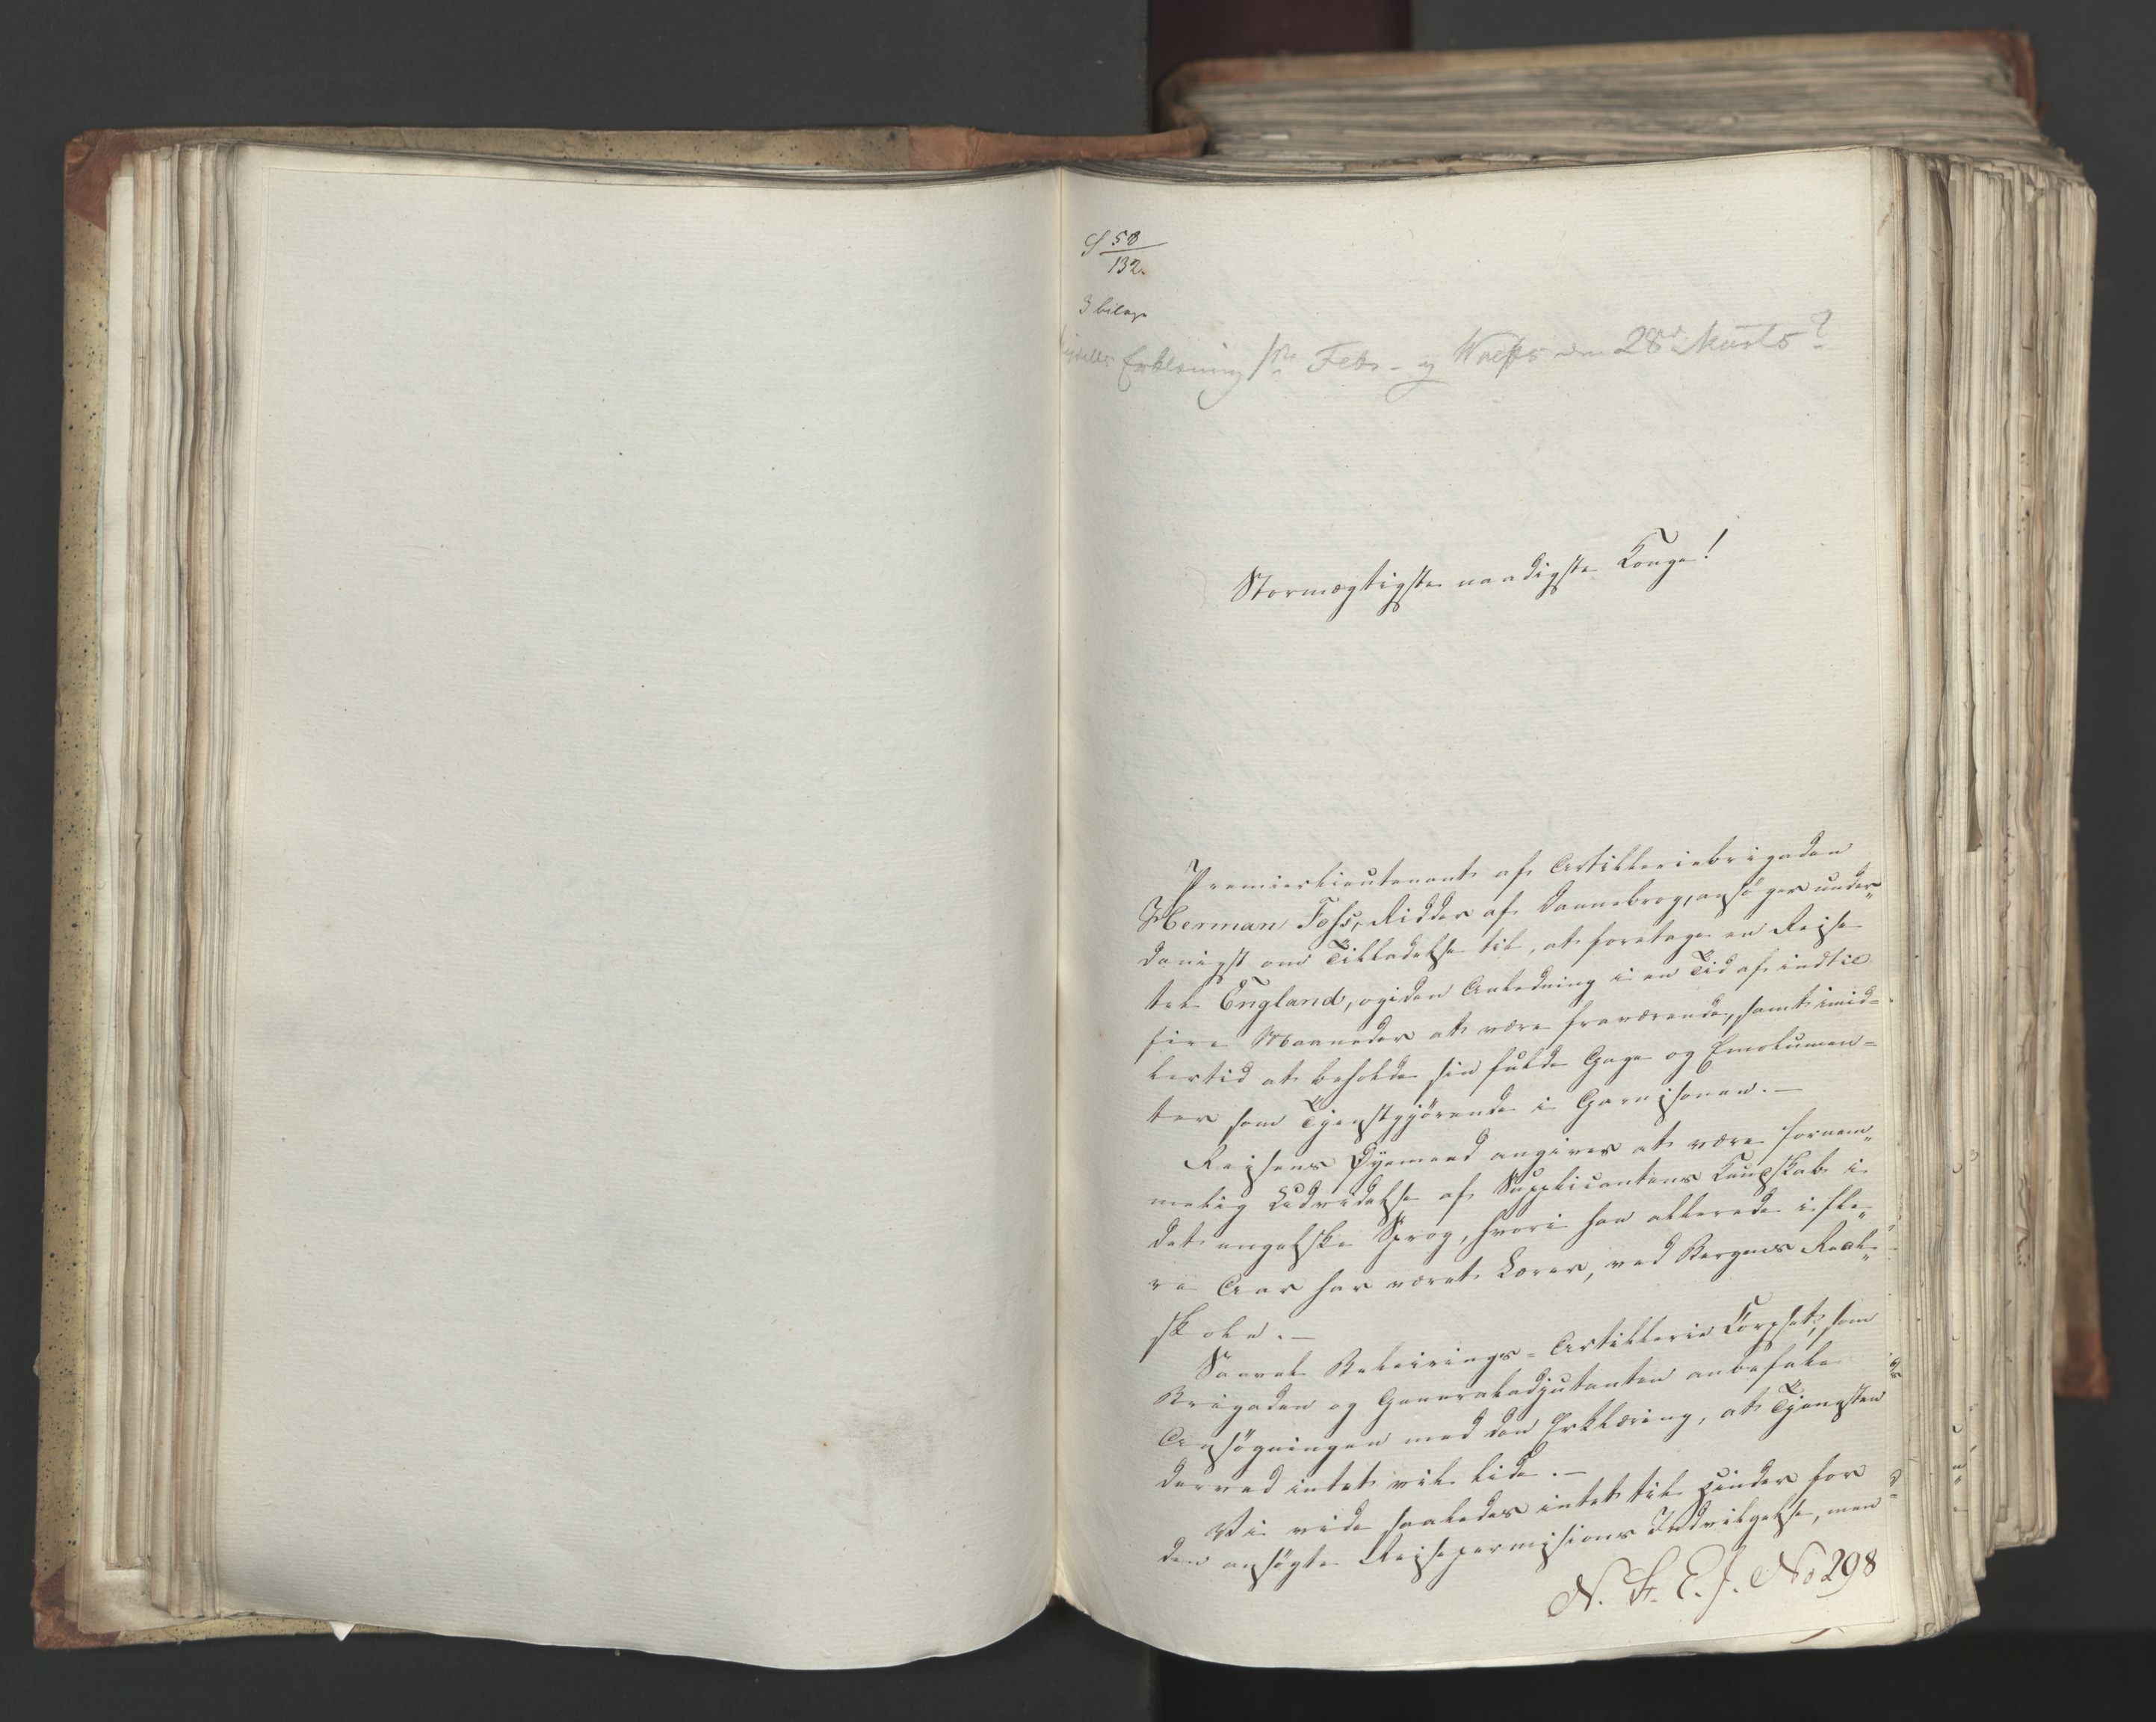 S 58
132.
3 bilage
Erklæring 1ste Febr. og den 28de Marts?
Stormægtigste naadigste Konge!
Premierlieutenant af Artilleriebrigaden
Herman Foss, Ridder af Dannebrog, ansøger under„
danigst om Tilladelse til, at foretage en Reise
til England, og i den Anledning i en Tid af indtil
fire Maaneder at være fraværende, samt imid=
lertid at beholde sin fulde Gage og Emolumen=
ter som Tjenstgjørende i Garnisonen.—
Reisens Øyemeed angives at være fornem„
melig Udvidelse af Supplicantens Kundskab i
det engelske Sprog, hvori han allerede i fle„
re Aar har været Lærer, ved Bergens Real„
skole.—
Saavel Beleirings=Artillerie Corpset, som
Brigaden og Generaladjutanten anbefale
Ansøgningen med den Erklæring, at Tjenesten
derved intet vil lide.—
Vi vide saaledes intet til Hinder for
den ansøgte Reisepermissions Indvilgelse, men
N. F. E. J. No 298